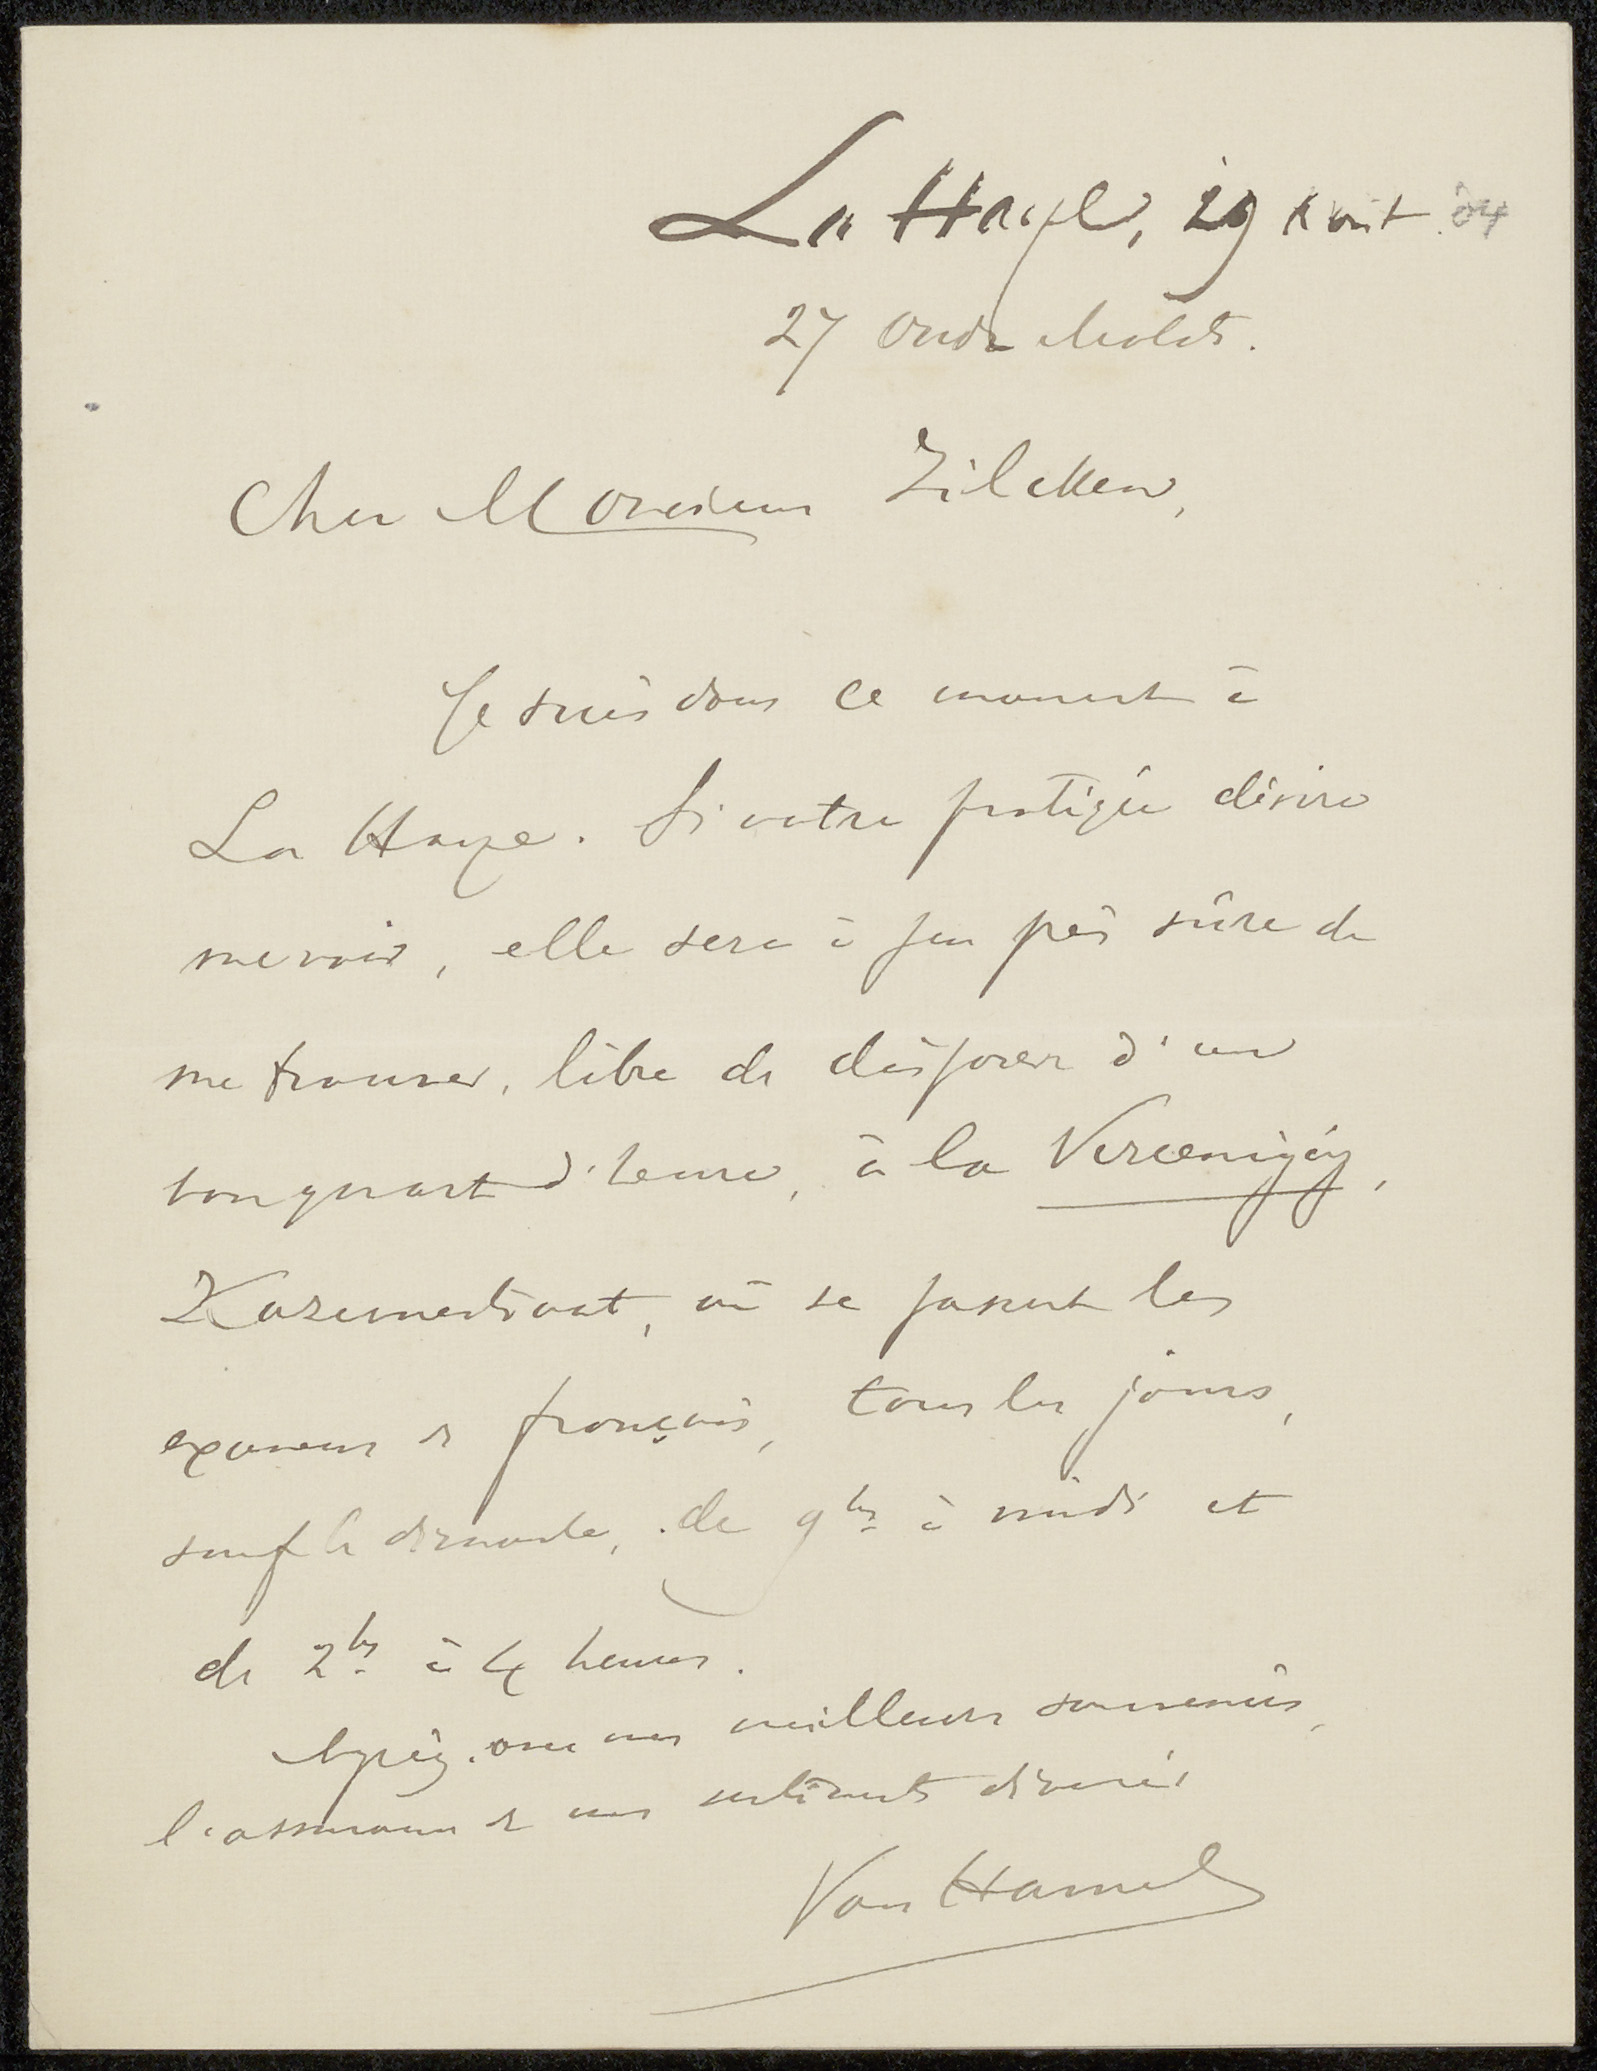 La Haye, 29 Août 04
27 Oude Molstr.
Cher Monsieur Zilcken,
Je suis dans ce moment à
La Haye. Si votre protégée désire
me voir, elle sera à peu près sûre de
me trouver, libre de disposer d'un
bon quart d'heure, à la Vereenigίng,
Kazernestraat, où se passent les
examens de français, tous les jours,
sauf le dimanche, de 9hs à midi et
de 2hs à 4 heures.
Agréez, avec mes meilleurs souvenirs,
l'assurance de mes sentiments dévoués
Van Hamel